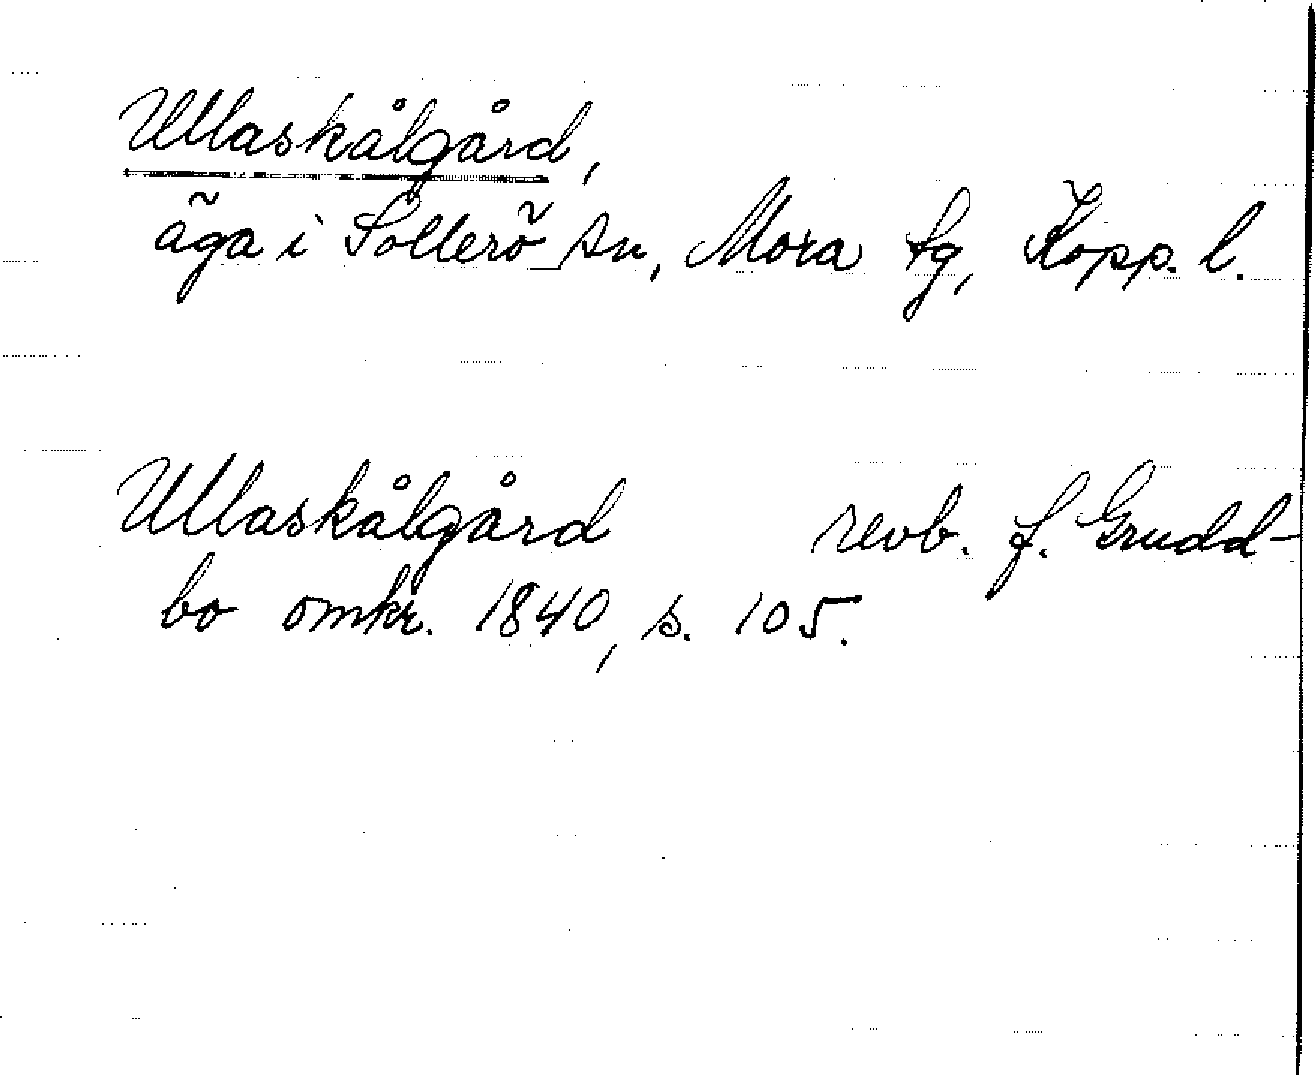 Ullaskålgård,
äga i Sollerö sn, Mora tg, Kopp. l.
Ullaskålgård revb. f. Grudd-
bo omkr. 1840, s. 105.